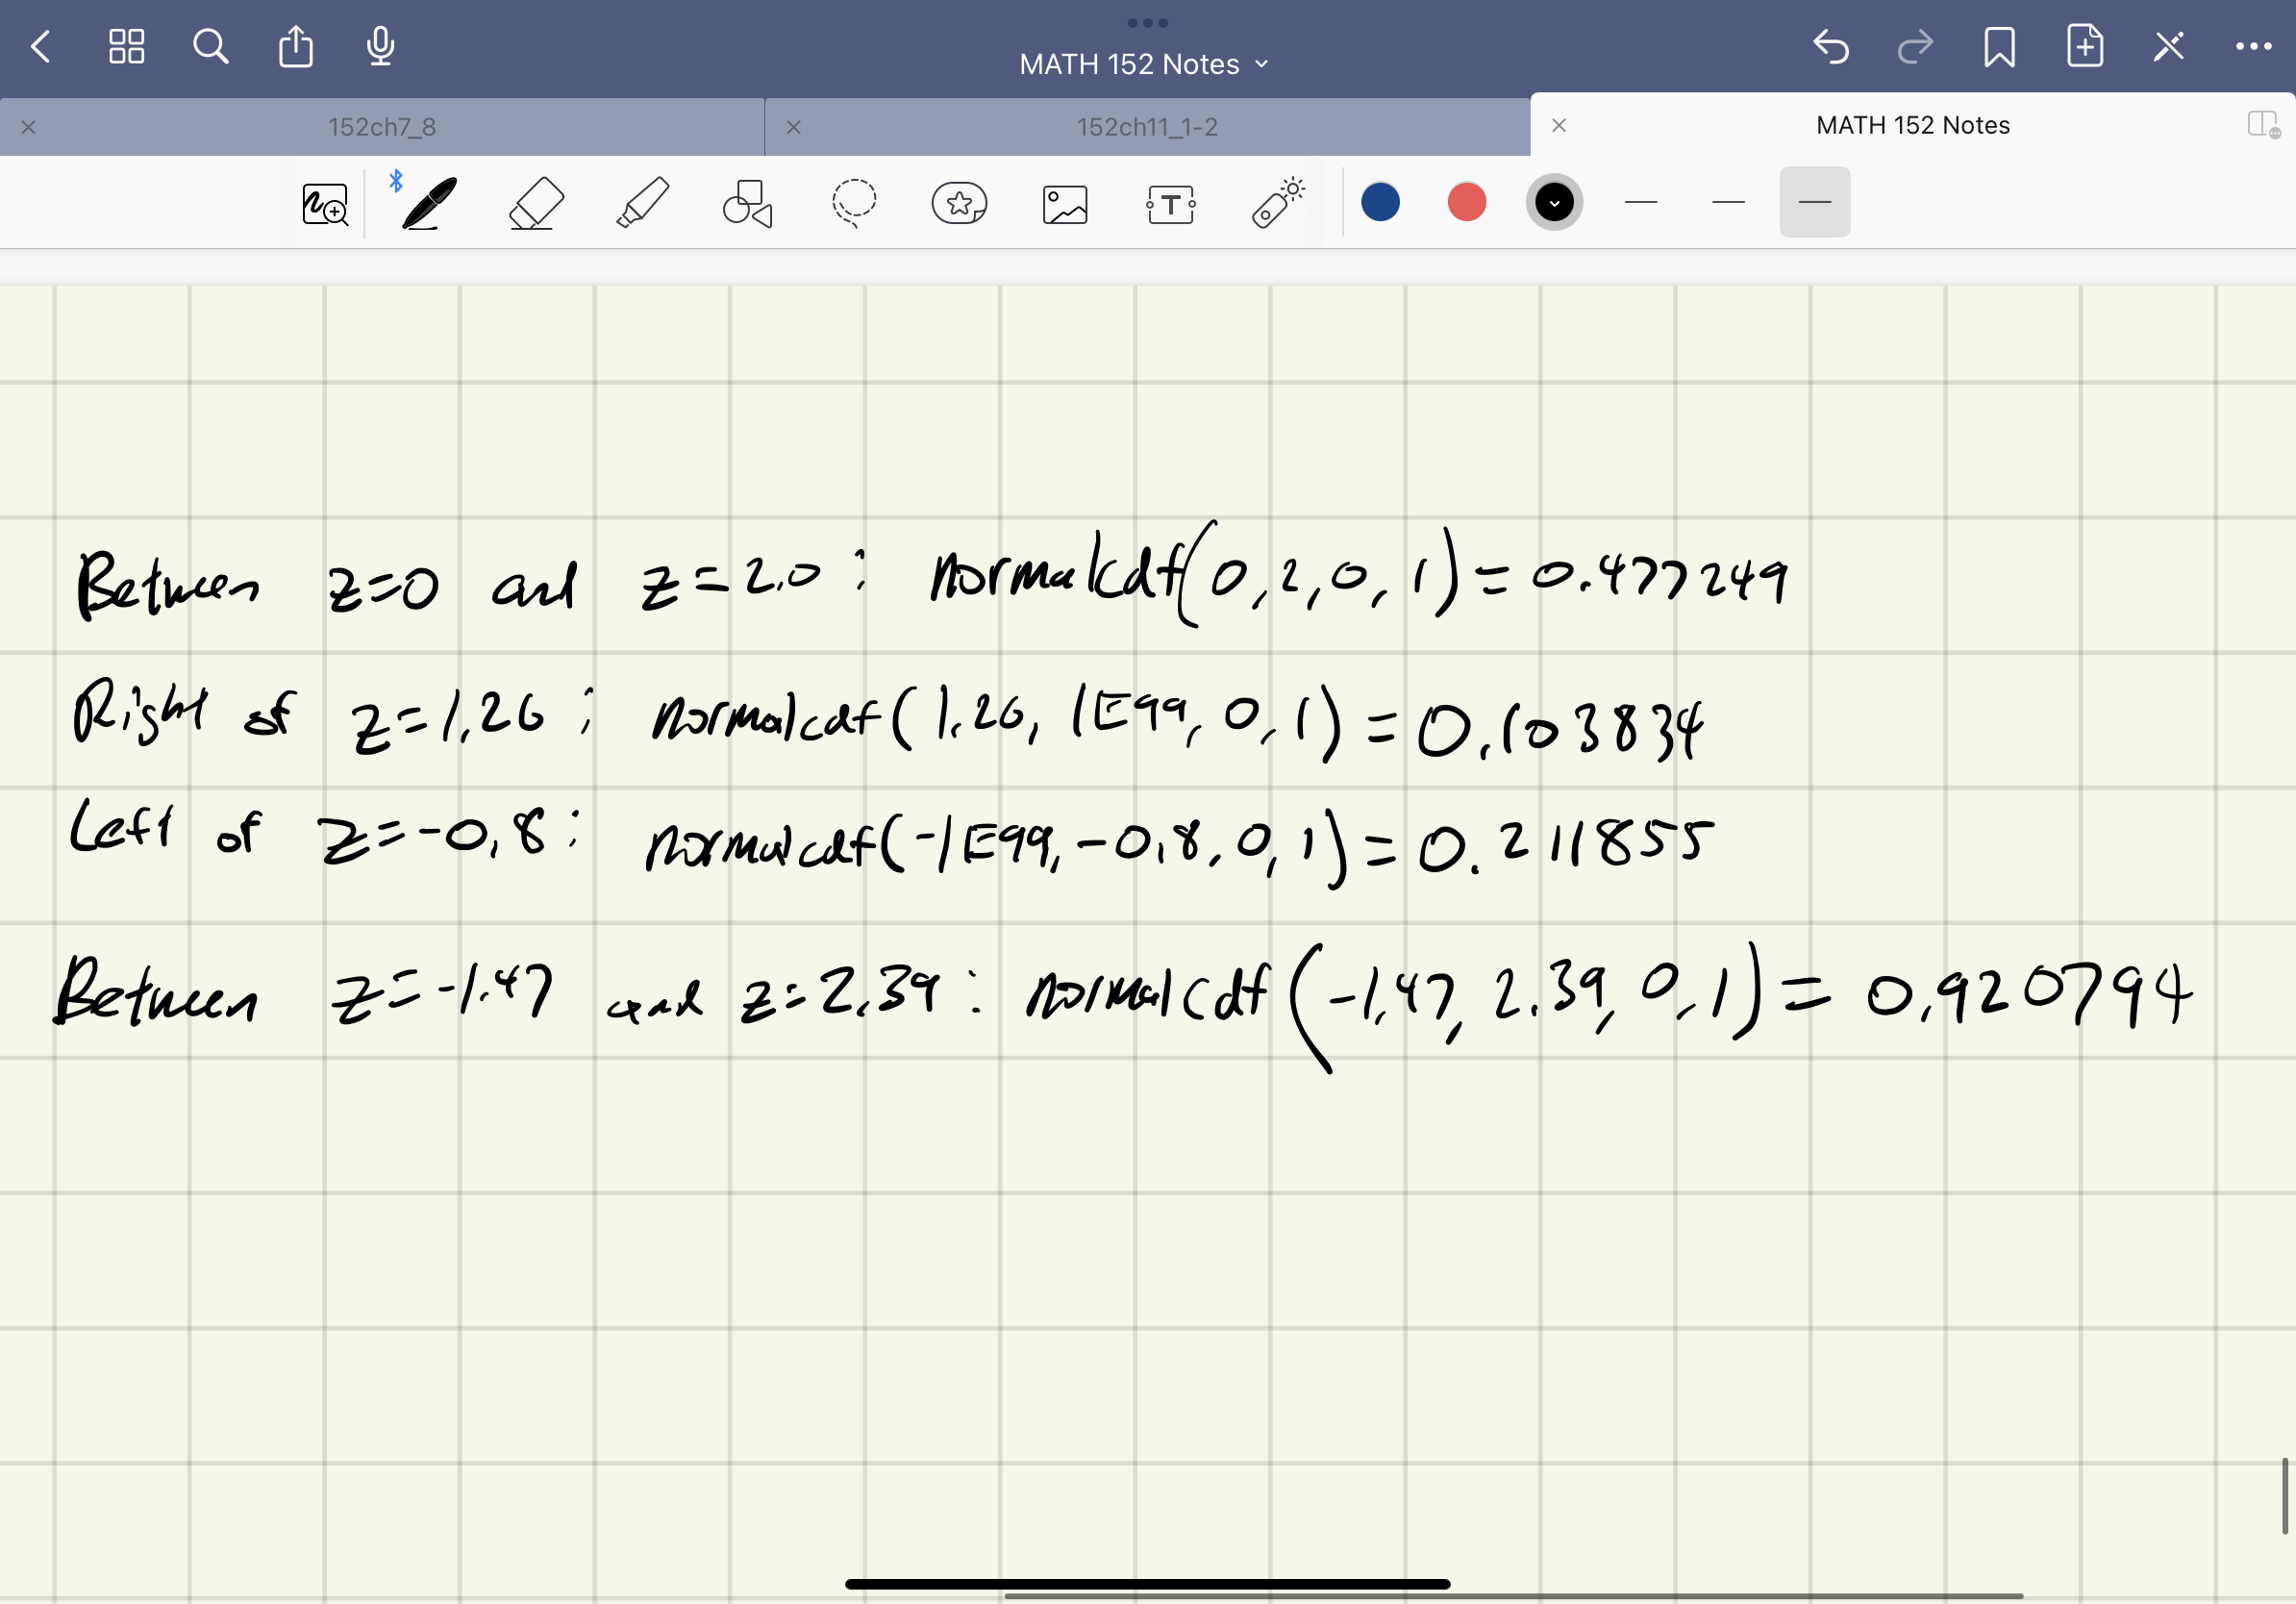 MATH 152 Notes
152ch7_8
152ch11_1-2
MATH 152 Notes
Between z=0 and z=2.0: normalcdf(0,2,0,1)=0.477249
Right of z=1.26: normalcdf(1.26,1E99,0,1)=0.103834
Left of z=-0.8: normalcdf(-1E99,-0.8,0,1)=0.211855
Between z=-1.47 and z=2.39: normalcdf(-1.47,2.39,0,1)=0.920794